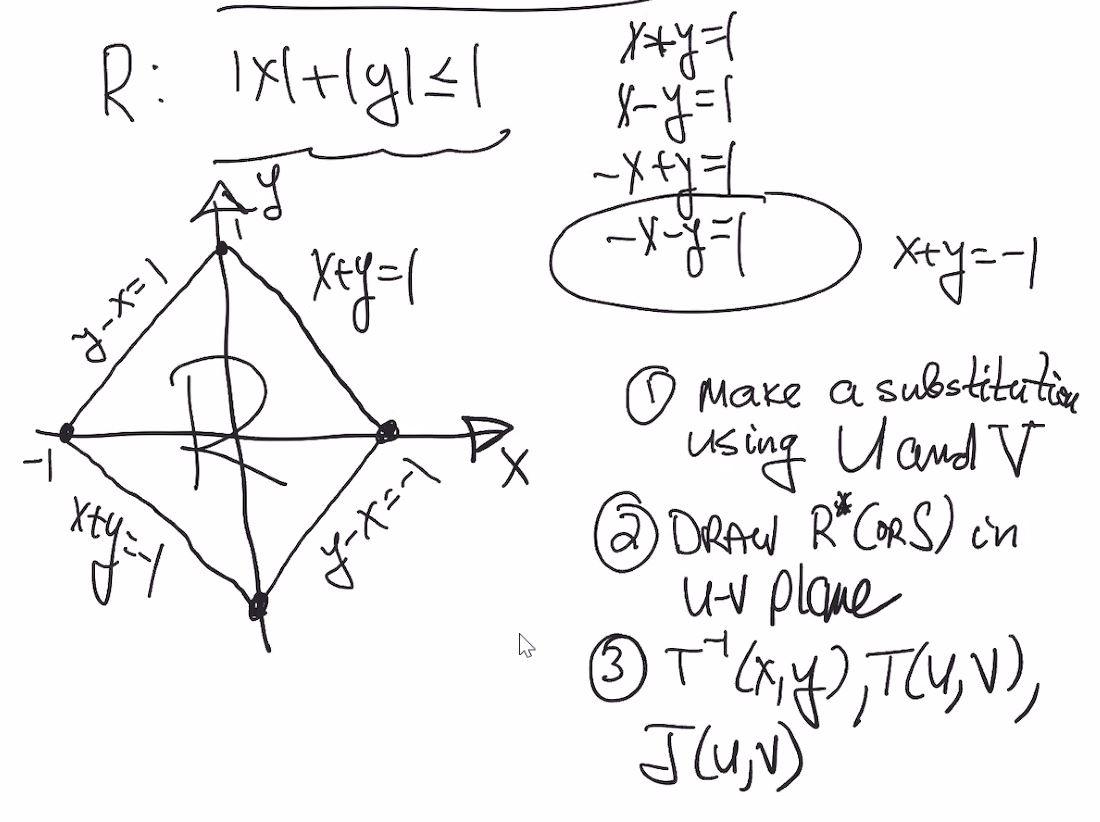 R: |x|+|y|≤1
x+y=1
x-y=1
-x+y=1
-x-y=1
x+y=-1
y
1
y-x=1
x+y=1
R
-1
x
x+y=-1
y-x=-1
① Make a substitution
using U and V
② DRAW R*(OR S) in
u-v plane
③ T⁻¹(x,y), T(u,v),
J(u,v)